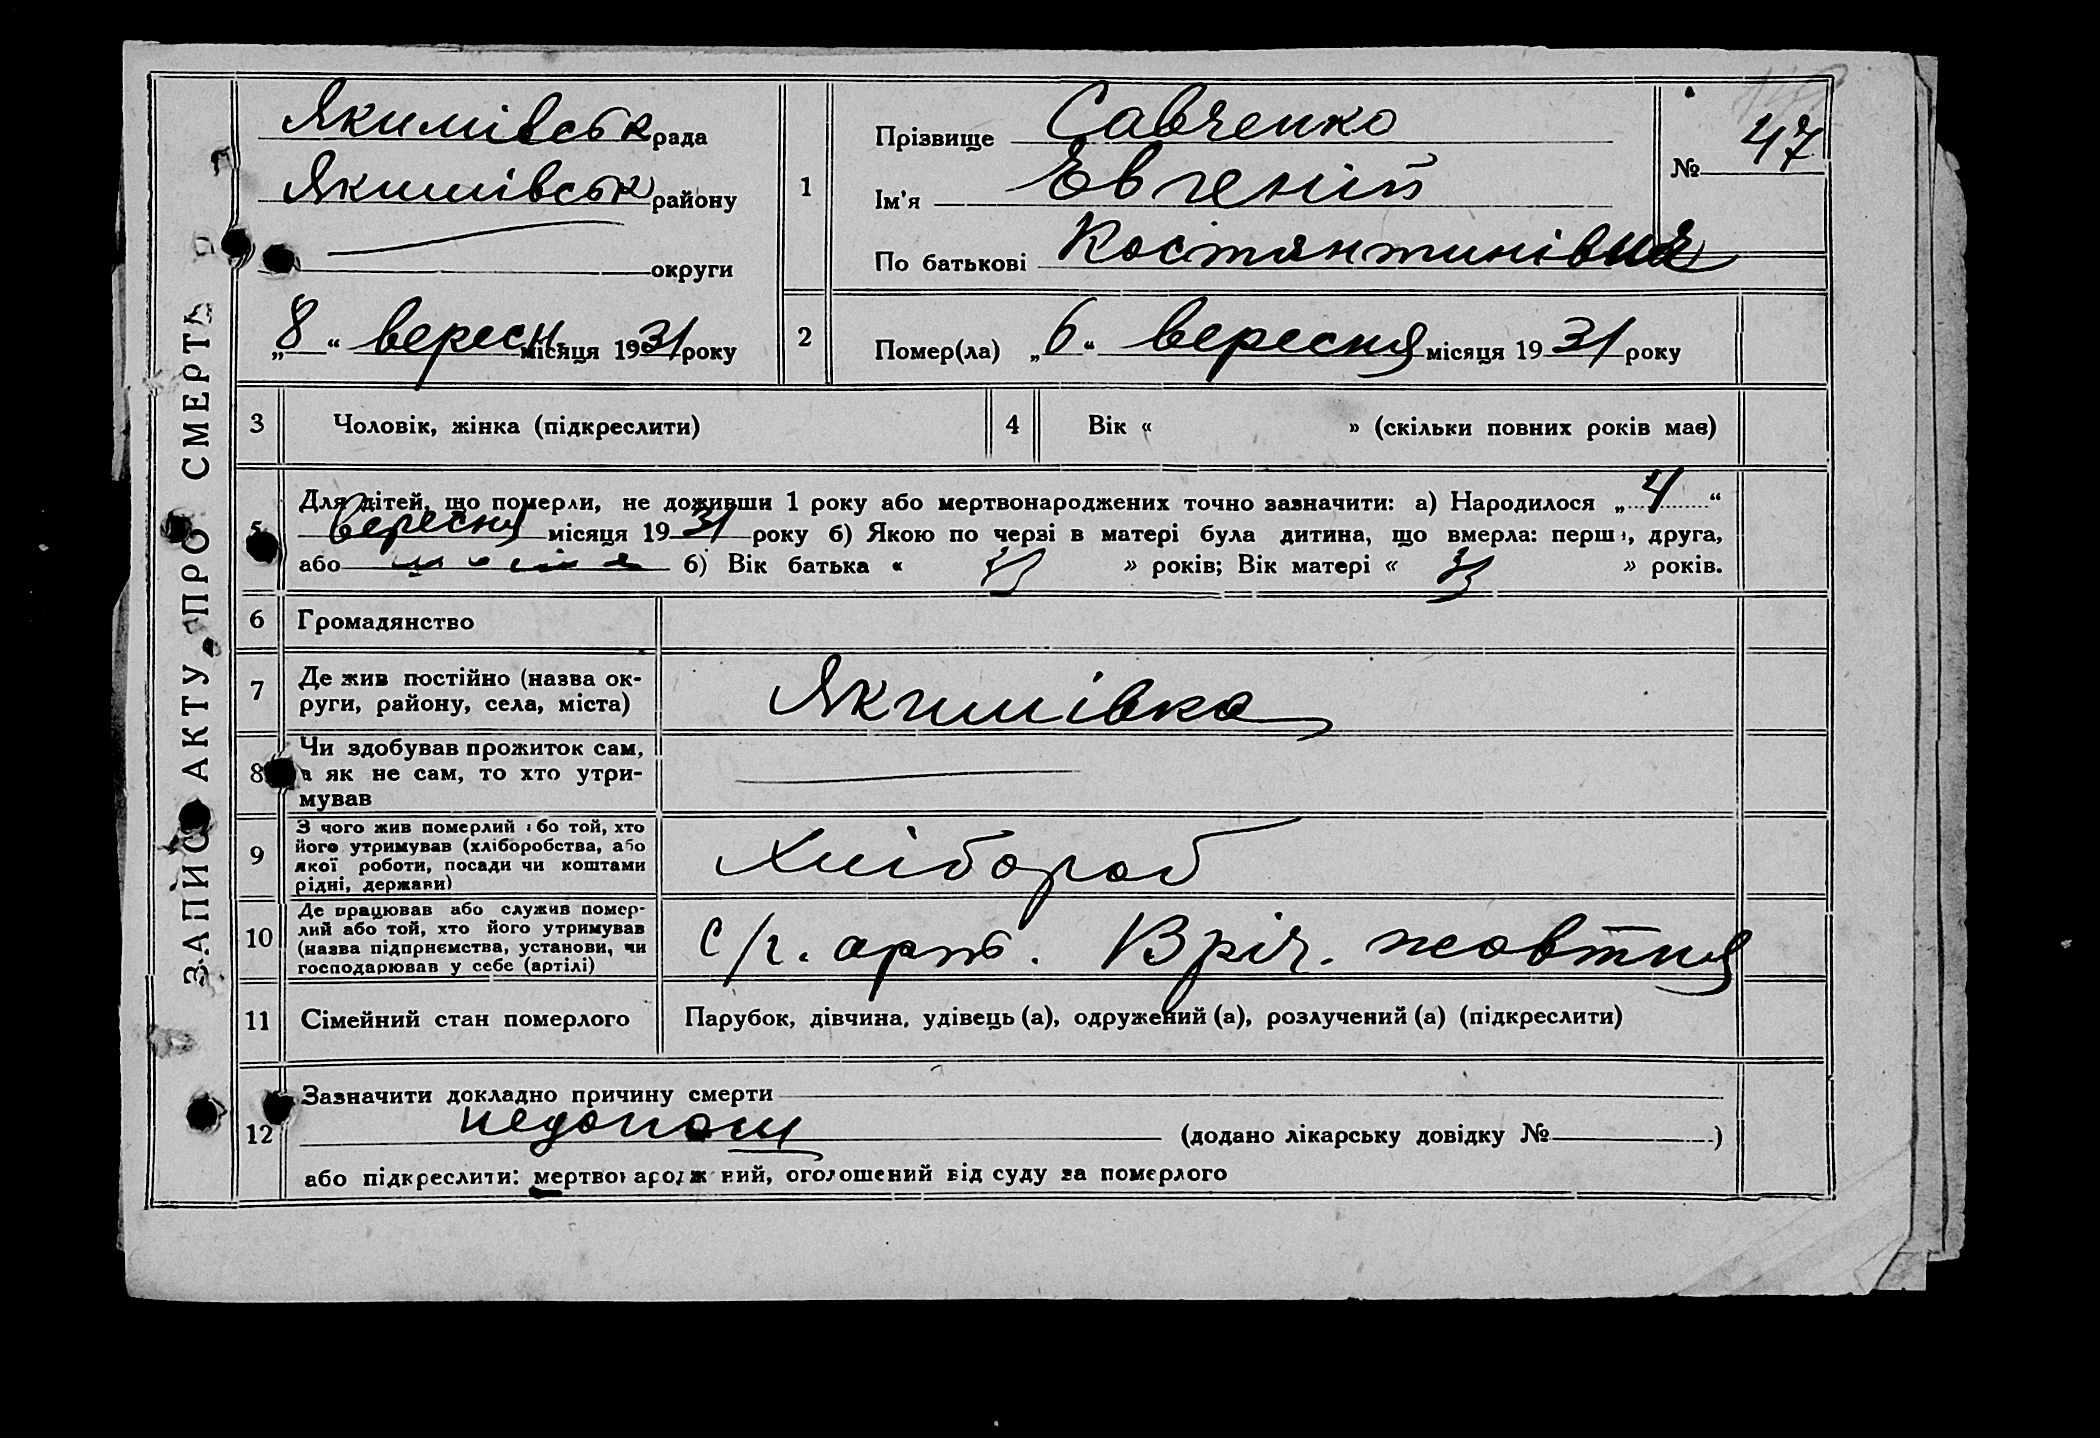 ЗАПИС АКТУ ПРО СМЕРТЬ
Якимівськ рада
Якимівськ району
округи
„8“ вересн. місяця 1931 року
1
Прізвище Савченко
Ім'я Евгеній
По батькові Костянтинівна
№ 47
2
Помер(ла) „6“ вересня місяця 1931 року
3 Чоловік, жінка (підкреслити)
4 Вік « » (скільки повних років має)
5 Для дітей, що померли, не доживши 1 року або мертвонароджених точно зазначити: а) Народилося „4“
вересня місяця 1931 року б) Якою по черзі в матері була дитина, що вмерла: перша, друга,
або б) Вік батька « » років; Вік матері « » років.
6 Громадянство
7 Де жив постійно (назва ок-
руги, району, села, міста)
Якимівка
8 Чи здобував прожиток сам,
а як не сам, то хто утри-
мував
9 З чого жив померлий або той, хто
його утримував (хліборобства, або
якої роботи, посади чи коштами
рідні, держави)
Хлібороб
10 Де працював або служив помер-
лий або той, хто його утримував
(назва підприємства, установи, чи
господарював у себе (артілі)
с/г. арт. В річ. жовтня
11 Сімейний стан померлого
Парубок, дівчина, удівець (а), одружений (а), розлучений (а) (підкреслити)
12 Зазначити докладно причину смерти
недонош (додано лікарську довідку № )
або підкреслити: мертвонароджений, оголошений від суду за померлого